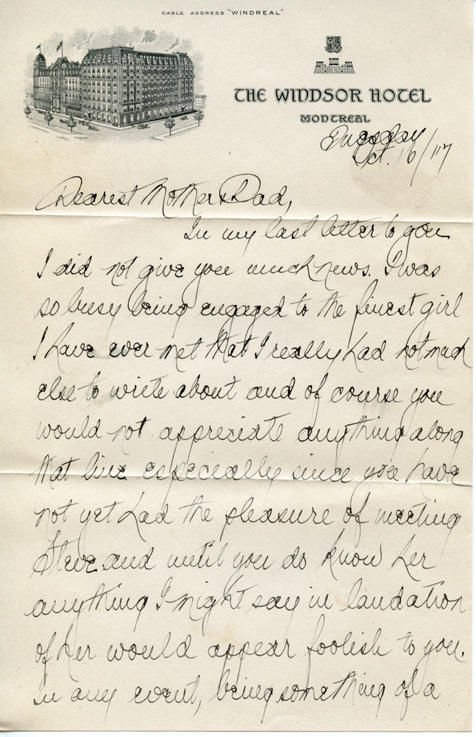 CABLE ADDRESS "WINDREAL"
THE WINDSOR HOTEL
MONTREAL
Tuesday
Oct. 16/17
Dearest Mother & Dad,
In my last letter to you
I did not give you much news. I was
so busy being engaged to the finest girl
I have ever met that I really had not much
else to write about and of course you
would not appreciate anything along
that line especially since you have
not yet had the pleasure of meeting
and until you do know her
anything I might say in laudation
of her would appear foolish to you.
In any event, being something of a